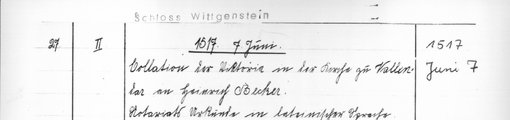 Schloss Wittgenstein
27 II 1517. 7 Juni. 1517
Collation der Viktorie in der Kirche zu Vallen- Juni 7
dar an Heinrich Becker.
Notariats Urkunde in lateinischer Sprache.